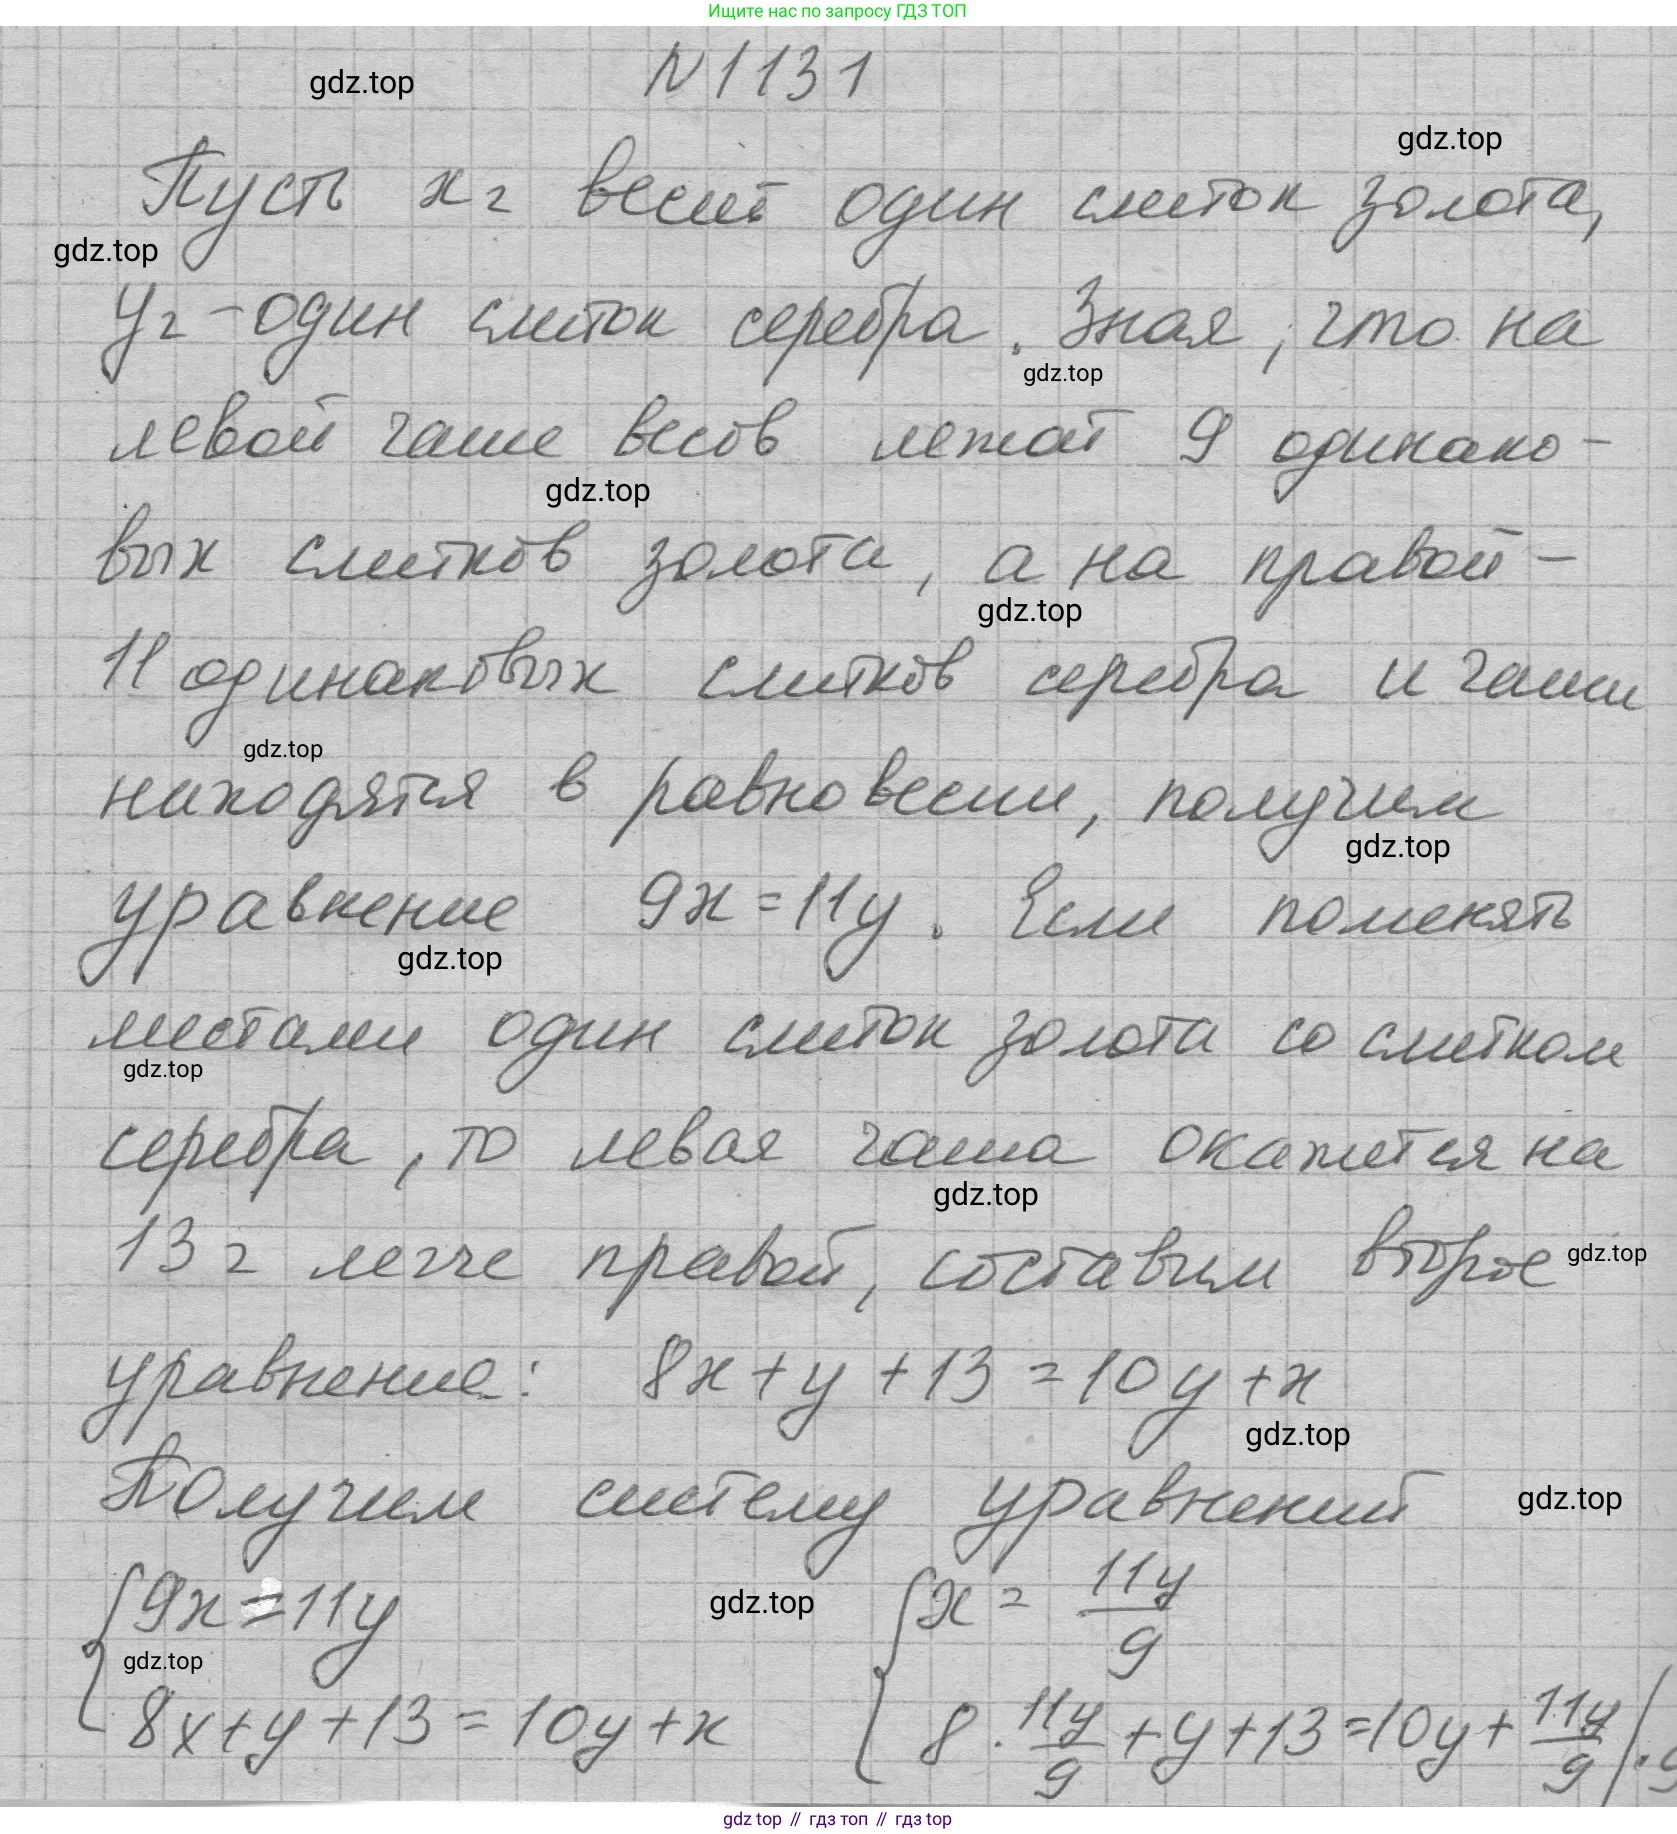 Ищите нас по запросу ГДЗ ТОП
N 1131
gdz.top
gdz.top
Пусть x г весит один слиток золота,
gdz.top
y г - один слиток серебра. Зная, что на
gdz.top
левой чаше весов лежат 9 одинако-
gdz.top
вых слитков золота, а на правой -
gdz.top
11 одинаковых слитков серебра и чаши
gdz.top
находятся в равновесии, получим
gdz.top
уравнение 9x = 11y. Если поменять
gdz.top
местами один слиток золота со слитком
gdz.top
серебра, то левая чаша окажется на
gdz.top
13 г легче правой, составим второе
gdz.top
уравнение: 8x + y + 13 = 10y + x
gdz.top
Получим систему уравнений
gdz.top
{ 9x = 11y { x = 11y/9
gdz.top
gdz.top
8x + y + 13 = 10y + x 8 · 11y/9 + y + 13 = 10y + 11y/9 | · 9
gdz top // гдз топ // гдз top